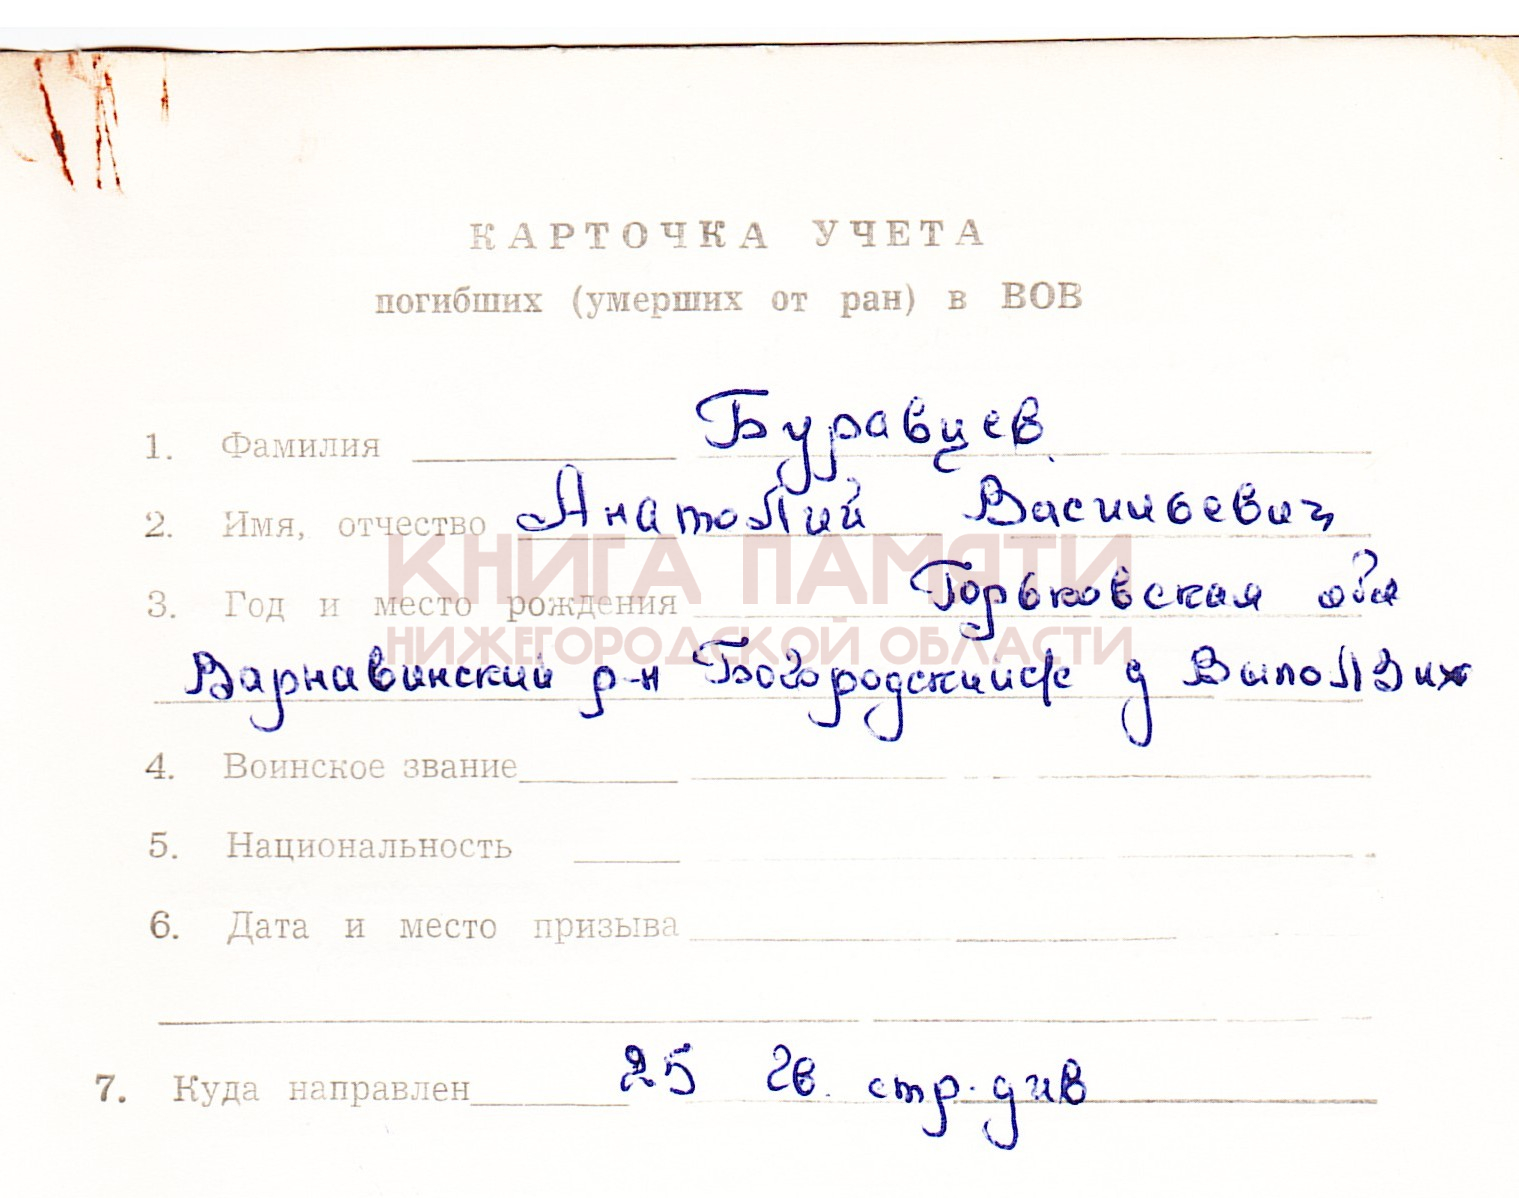 КАРТОЧКА УЧЕТА
погибших (умерших от ран) в ВОВ
1. Фамилия Буравцев
2. Имя, отчество Анатолий Васильевич
КНИГА ПАМЯТИ
3. Год и место рождения Горьковская обл
НИЖЕГОРОДСКОЙ ОБЛАСТИ
Варнавинский р-н Богородский с/с д Выползих
4. Воинское звание
5. Национальность
6. Дата и место призыва
7. Куда направлен 25 гв. стр. див